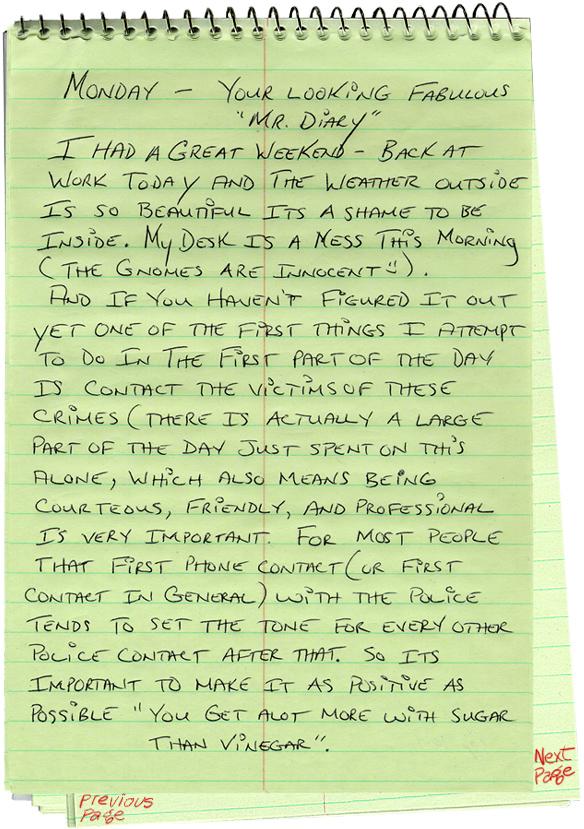 MONDAY - YOUR LOOKING FABULOUS
"MR. DIARY"
I HAD A GREAT WEEKEND - BACK AT
WORK TODAY AND THE WEATHER OUTSIDE
IS SO BEAUTIFUL ITS A SHAME TO BE
INSIDE. MY DESK IS A MESS THIS MORNING
(THE GNOMES ARE INNOCENT :)).
AND IF YOU HAVEN'T FIGURED IT OUT
YET ONE OF THE FIRST THINGS I ATTEMPT
TO DO IN THE FIRST PART OF THE DAY
IS CONTACT THE VICTIMS OF THESE
CRIMES (THERE IS ACTUALLY A LARGE
PART OF THE DAY JUST SPENT ON THIS
ALONE, WHICH ALSO MEANS BEING
COURTEOUS, FRIENDLY, AND PROFESSIONAL
IS VERY IMPORTANT. FOR MOST PEOPLE
THAT FIRST PHONE CONTACT (OR FIRST
CONTACT IN GENERAL) WITH THE POLICE
TENDS TO SET THE TONE FOR EVERY OTHER
POLICE CONTACT AFTER THAT. SO ITS
IMPORTANT TO MAKE IT AS POSITIVE AS
POSSIBLE "YOU GET ALOT MORE WITH SUGAR
THAN VINEGAR".
Next
Page
Previous
Page